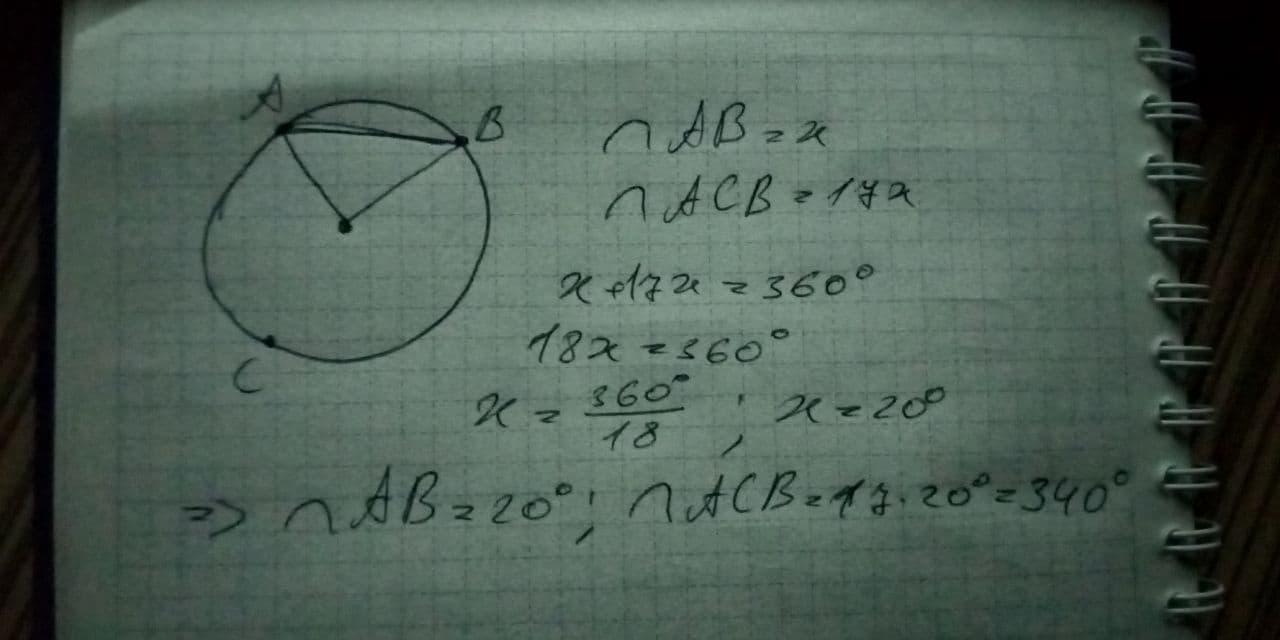 A
B
C
∩ AB = x
∩ ACB = 17x
x + 17x = 360°
18x = 360°
x = 360°/18 ; x = 20°
=> ∩ AB = 20° ; ∩ ACB = 17 · 20° = 340°